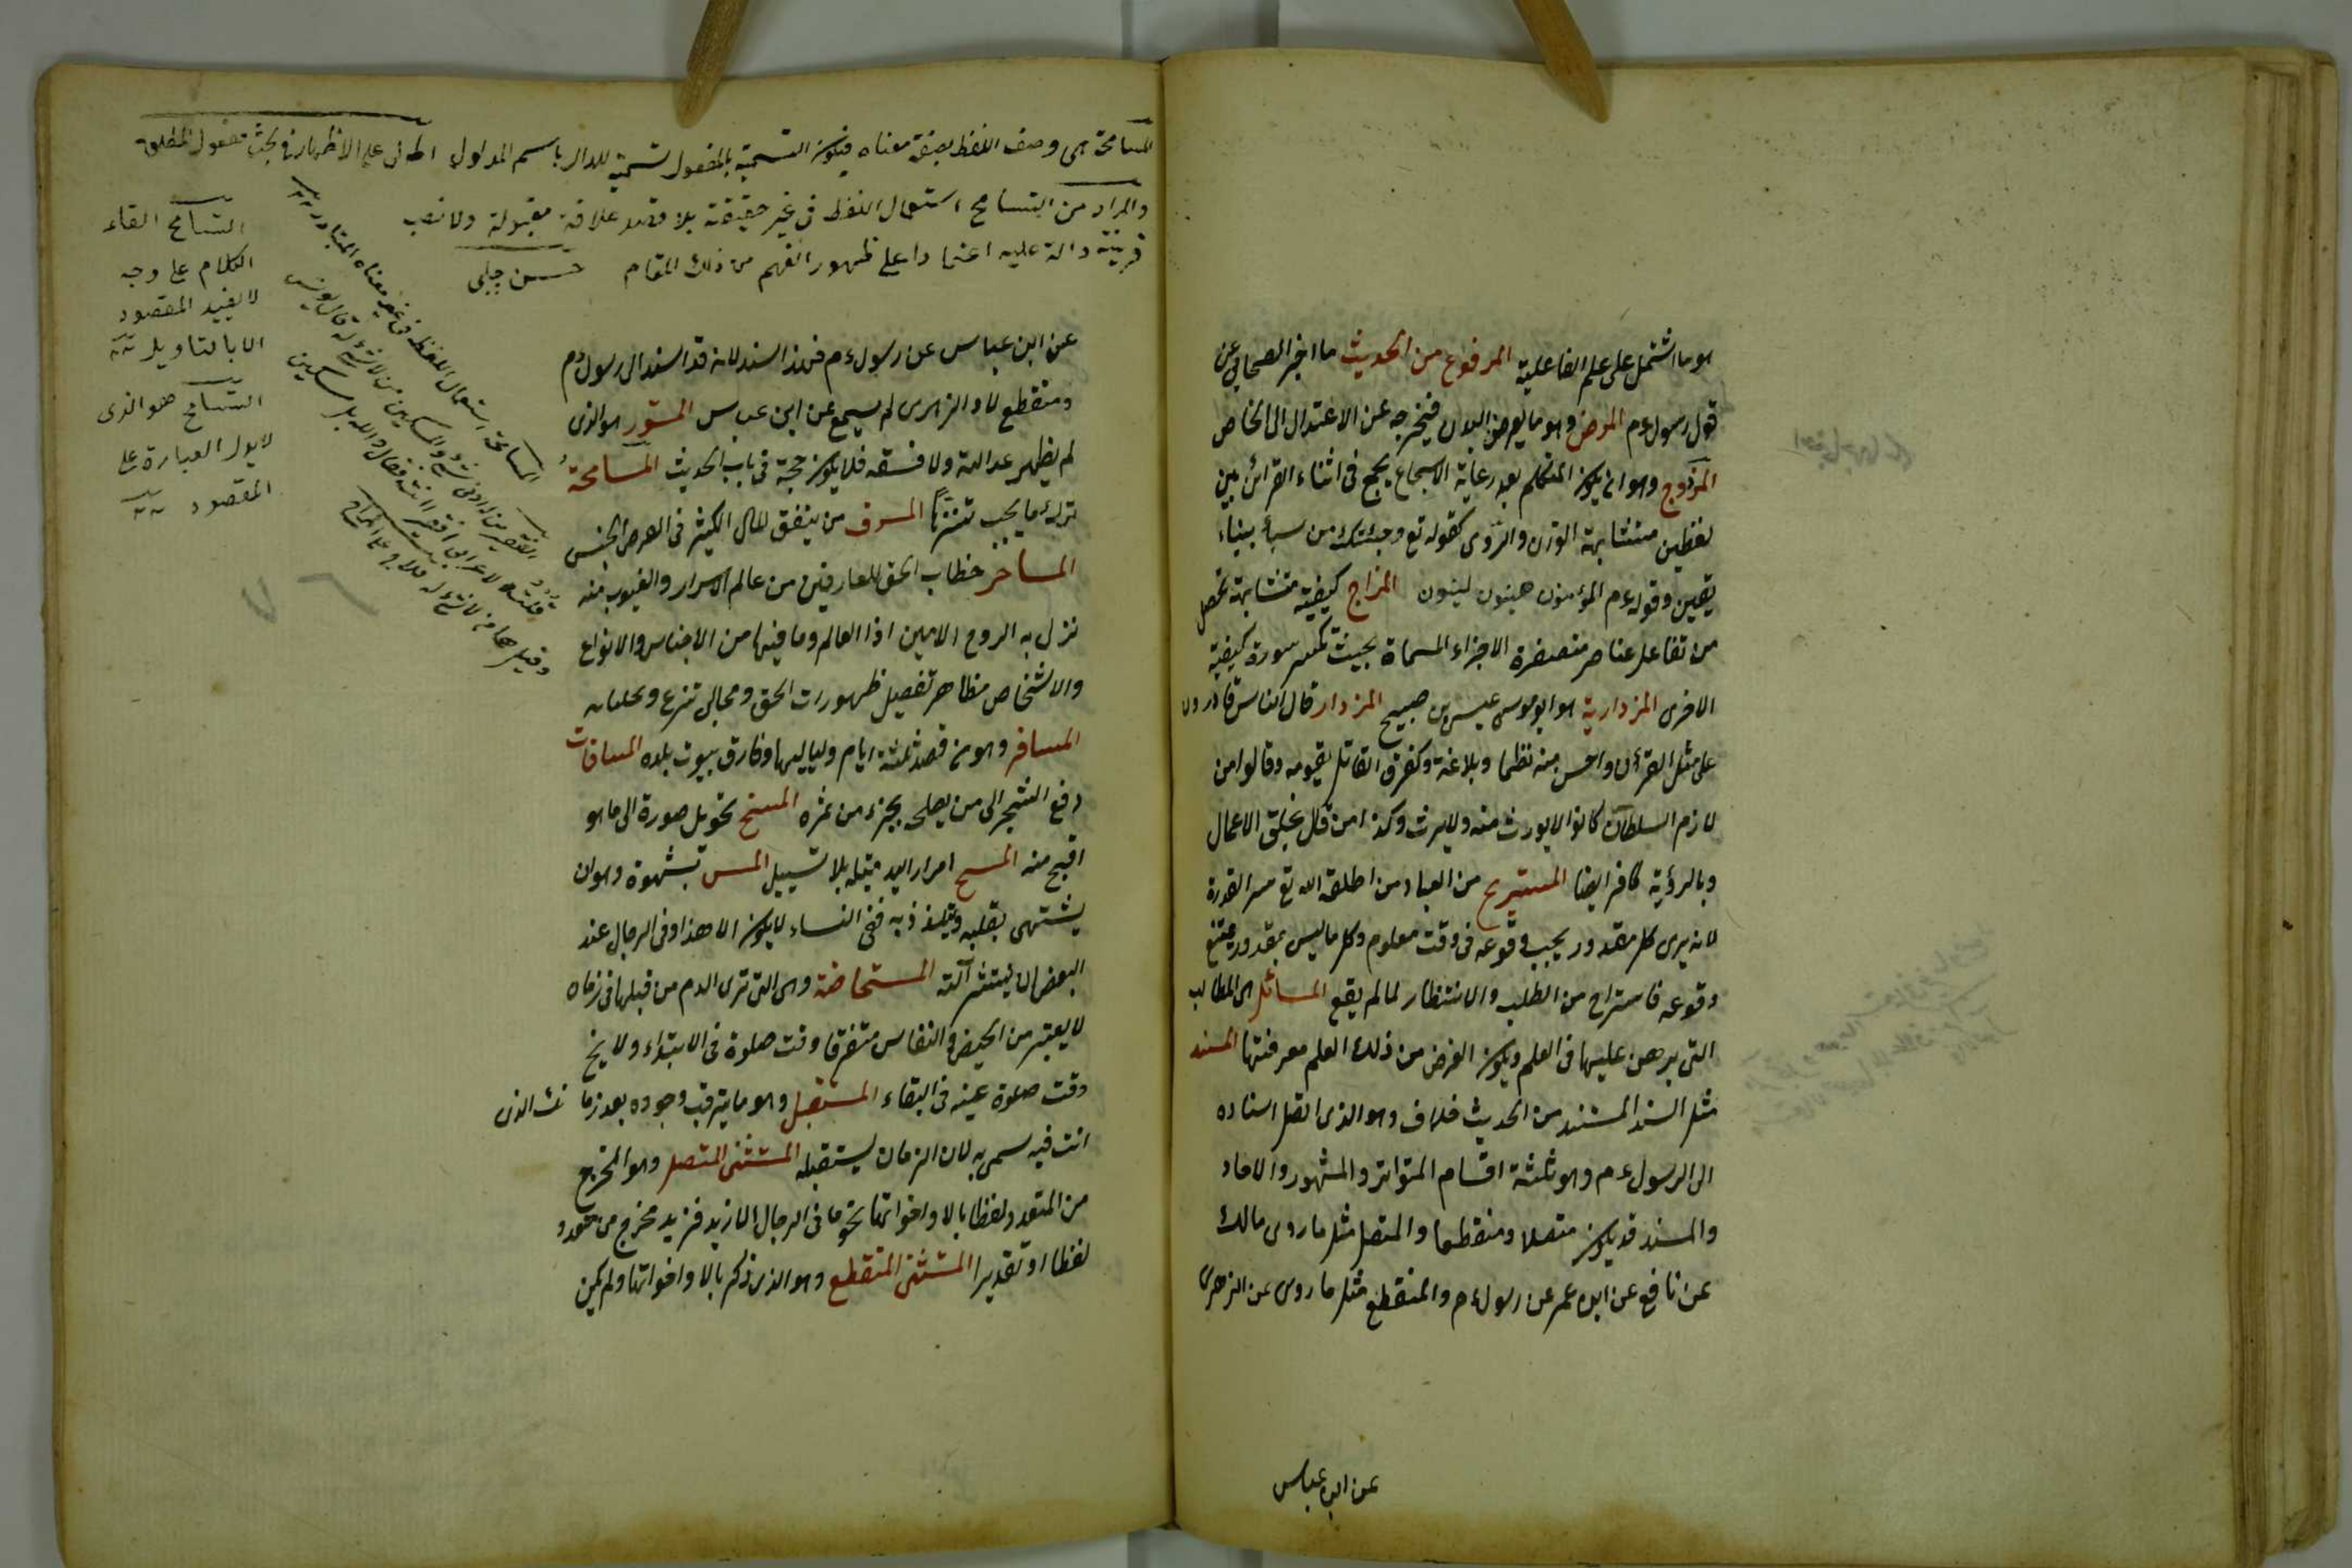 هو ما اشتمل على علم الفاعلية المرفوع من الحديث ما اخبر الصحابى عن
قول رسول ءم المرض وهو ما يعرض البدن فيخرجه عن الاعتدال الى الخاص
المزدوج وهو ان يكون المتكلم بعد رعاية الاسجاع يجمع فى اثناء القرائن بين
لفظين متشابهة الوزن والروى كقوله تع وجئتك من سبأ بنباء
يقين وقوله ءم المؤمنون هينون لينون المزاج كيفية متشابهة تحصل
من تفاعل عناصر متصغرة الاجزاء المسماة بحيث تكسر سورة كيفية
الاخرى المزدارية هو ابو موسى عيسى بن صبيح المزدار قال الناس قادرون
على مثل القرأن واحسن منه نظما وبلاغة وكفر القائل بقدمه وقالوا من
لازم السلطان كافر لا يورث منه ولا يرث وكذا من قال بخلق الاعمال
وبالرؤية كافر ايضا المستريح من العباد من اطلعه الله تع سر القدرة
لانه يرى كل مقدور يجب وقوعه فى وقت معلوم وكل ما ليس بمقدور يمتنع
وقوعه فاستراح من الطلب والانتظار لما لم يقع المسائل هى المطالب
التى يبرهن عليها فى العلم ويكون الغرض من ذلك العلم معرفتها المسند
مثل السند المسند من الحديث خلاف وهو الذى اتصل اسناده
الى الرسول ءم وهو ثلثة اقسام المتواتر والمشهور والاحاد
والمسند قد يكون متصلا ومنقطعا والمتصل مثل ما روى مالك
عن نافع عن ابن عمر عن رسول ءم والمنقطع مثل ما روى عن الزهرى
عن ابن عباس
المسامحة هى وصف اللفظ بصفة معناه فيكون التسمية بالمفعول تسمية للدال باسم المدلول على الاظهار فى بحث مفعول المطلق
والمراد من التسامح استعمال اللفظ فى غير حقيقته بلا قصد علاقة مقبولة ولا نصب
قرينة دالة عليه اعتمادا على ظهور الفهم من ذلك المقام حسن چلبى
التسامح القاء
الكلام على وجه
لا يفيد المقصود
الا بالتاويل
التسامح هو الذى
لا يدل العبارة على
المقصود
المسامحة استعمال اللفظ فى غير معناه المتبادر
عن ابن عباس عن رسول ءم فهذا السند لانه قد اسند الى رسول ءم
ومنقطع لان الزهرى لم يسمع عن ابن عباس المستور هو الذى
لم يظهر عدالته ولا فسقه فلا يكون حجة فى باب الحديث المسامحة
ترك ما يجب تنزها المسرف من ينفق المال الكثير فى الغرض الخسيس
المسامر خطاب الحق للعارفين من عالم الاسرار والغيوب منه
نزل به الروح الامين اذا العالم وما فيها من الاجناس والانواع
والاشخاص مظاهر تفصيل ظهورات الحق ومجالى
المسافر وهو من قصد ثلثة ايام ولياليها وفارق بيوت بلده المساقات
دفع الشجر الى من يصلحه بجزء من ثمره المسخ تحويل صورة الى ما هو
اقبح منه المسح امرار اليد مبتلة بلا تسييل المس بشهوة وهو ان
يشتهى بقلبه ويتلذذ به ففى النساء لا يكون الا هذا وفى الرجال عند
البعض ان ينتشر آلته المستحاضة وهى التى ترى الدم من قبلها فى زمان
لا يعتبر من الحيض والنفاس متفرقا وقت صلوة فى الابتداء ولا يخ
وقت صلوة عينه فى البقاء المستقبل وهو ما يترقب وجوده بعد زمانك الذى
انت فيه سمى به لان الزمان يستقبله المستثنى المتصل وهو المخرج
من المتعدد لفظا بالا واخواتها نحو ما فى الرجال الا زيد فزيد مخرج من متعدد
لفظا او تقديرا المستثنى المنقطع وهو الذى ذكر بالا واخواتها ولم يكن